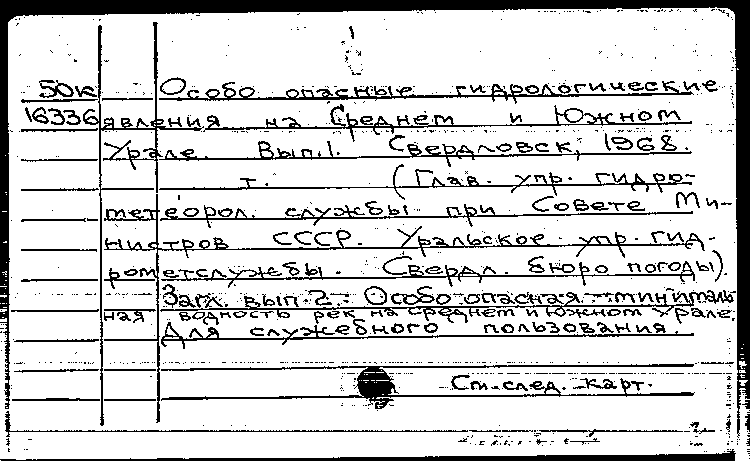 50к Особо опасные гидрологические
16336 явления на Среднем и Южном
Урале. Вып.1. Свердловск, 1968.
т. (Глав. упр. гидро-
метеорол. службы при Совете Ми-
нистров СССР. Уральское упр. гид-
рометслужбы. Свердл. бюро погоды).
Загл. вып. 2: Особо опасная минималь-
ная водность рек на Среднем и Южном Урале.
Для служебного пользования.
См. след. карт.